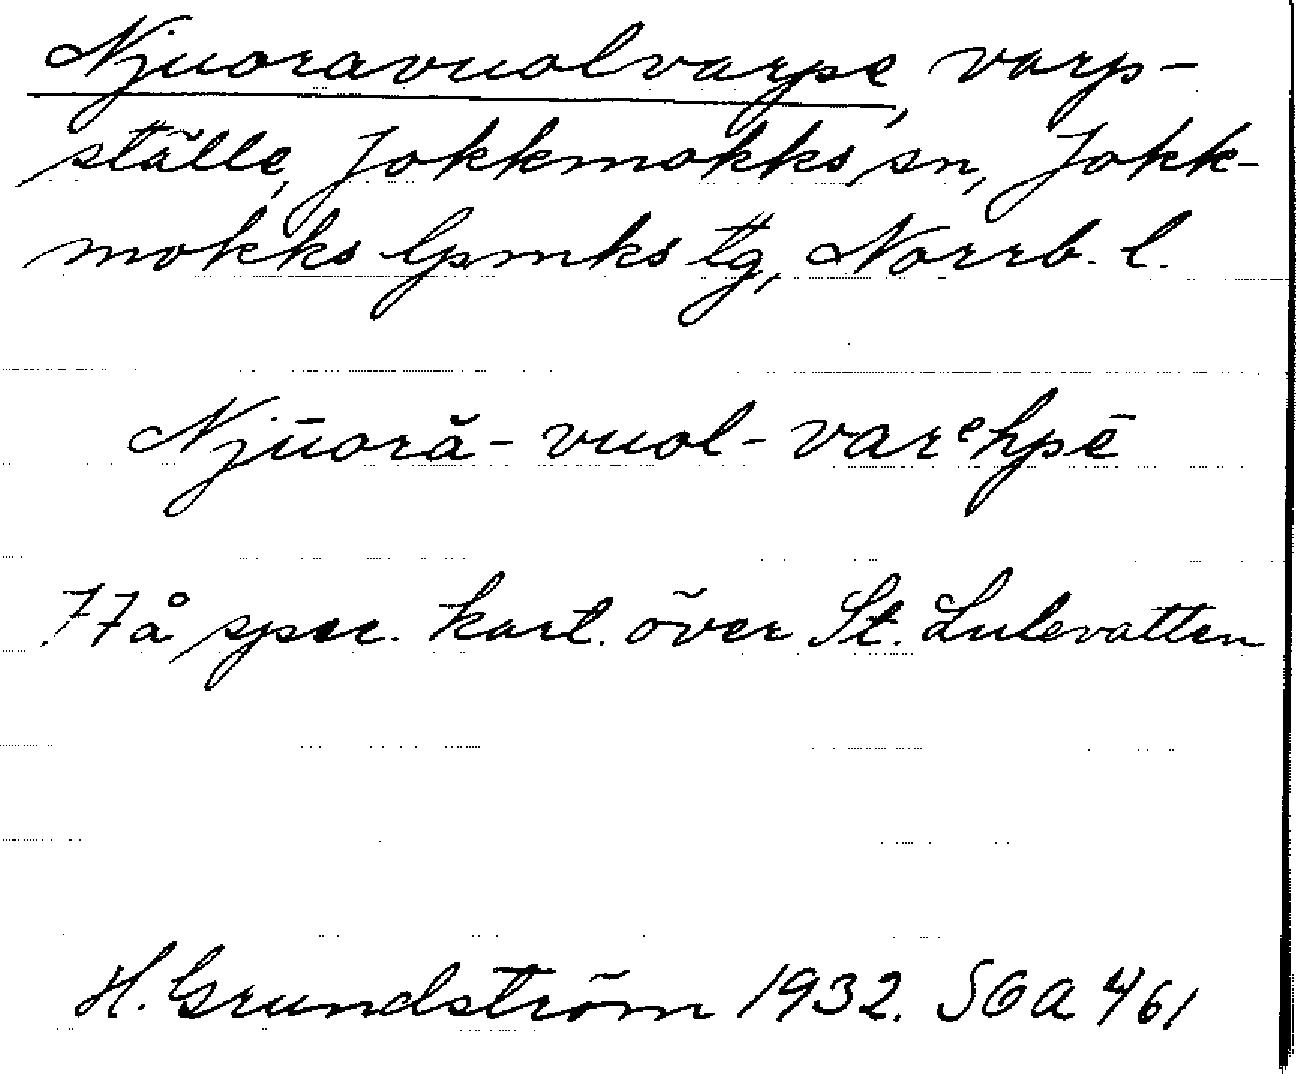 Njuoravuolvarpe, varp-
ställe, Jokkmokks sn, Jokk-
mokks lpmks tg, Norrb. l.
Njūoră- vuol- varᵉhpē
77å spec. kart. över St. Lulevatten
H. Grundström 1932. SOA 4/61